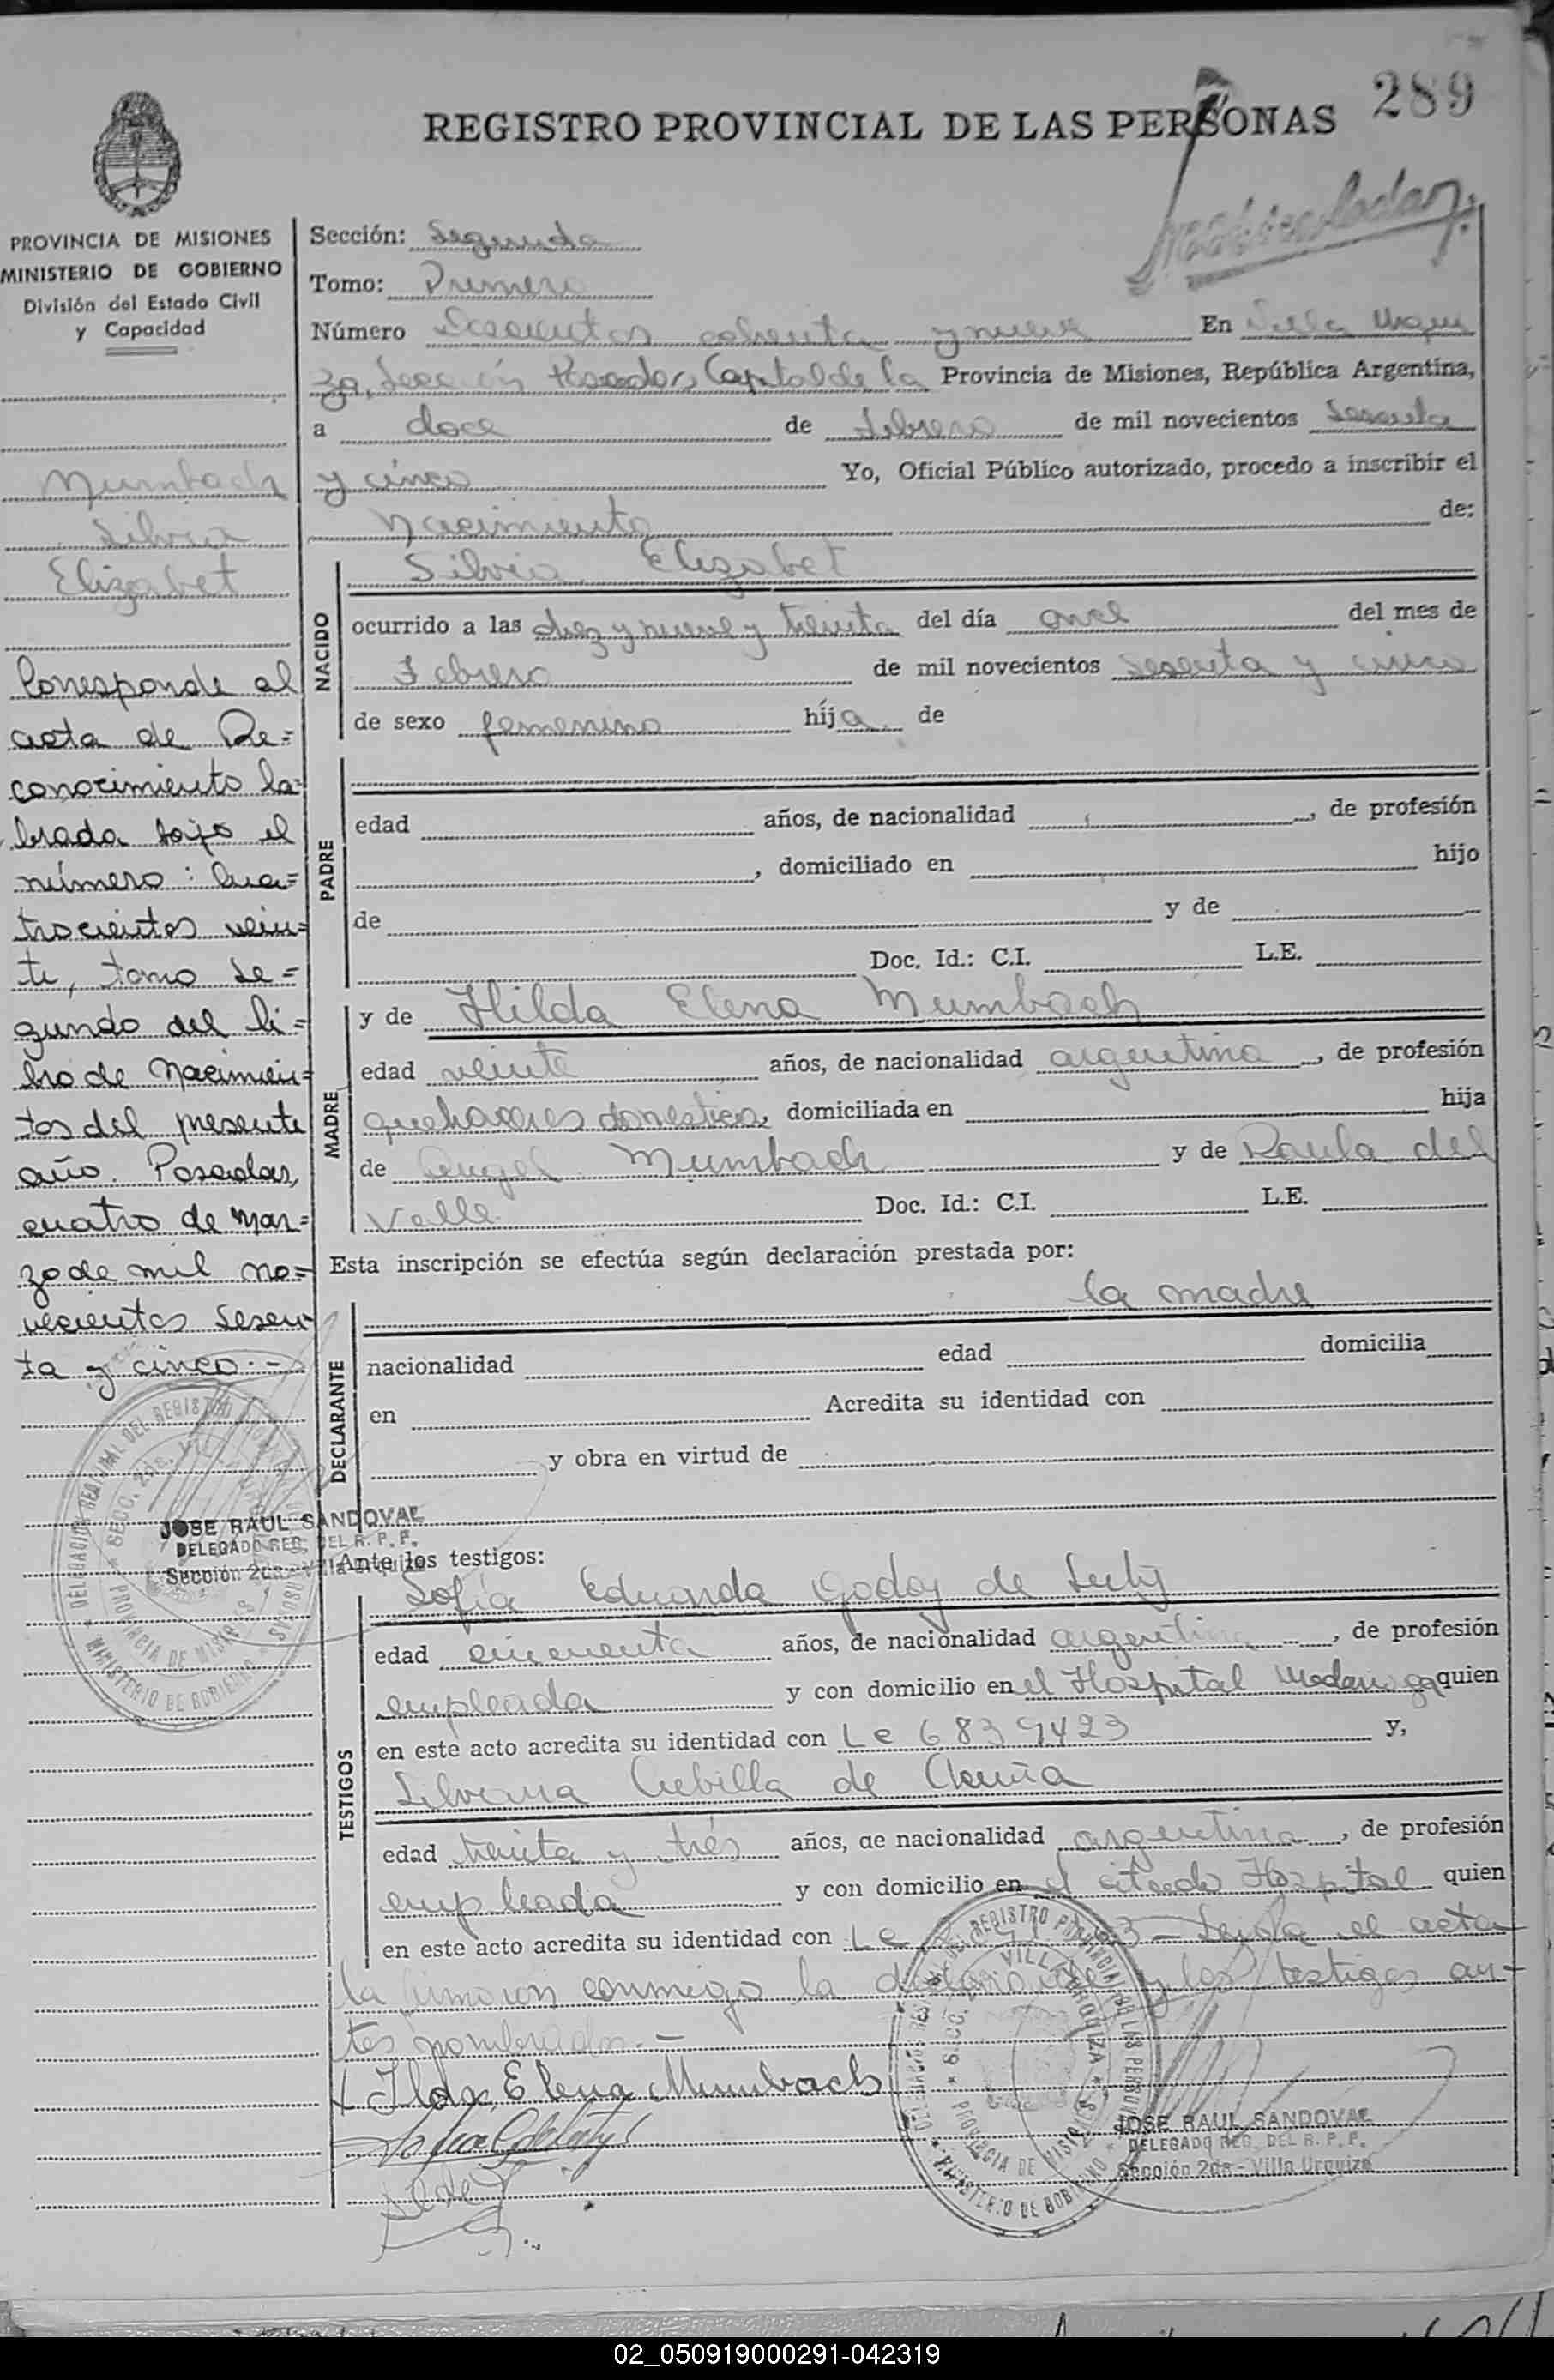 289
REGISTRO PROVINCIAL DE LAS PERSONAS
PROVINCIA DE MISIONES
MINISTERIO DE GOBIERNO
División del Estado Civil
y Capacidad
Mumbach
Silvia
Elizabet
Corresponde al
acta de Re=
conocimiento la=
brada bajo el
número: Cua=
trocientos vein=
te, tomo Se=
gundo del li=
bro de Nacimien=
tos del presente
año. Posadas,
cuatro de Mar=
zo de mil no=
vecientos Sesen=
ta y cinco.-
JOSE RAUL SANDOVAL
DELEGADO REG. DEL R. P. P.
Sección 2da - Villa Urquiza
Sección: Segunda
Tomo: Primero
Número Doscientos ochenta y nueve En Villa Urqui
za, Sección Posadas Capital de la Provincia de Misiones, República Argentina,
a doce de Febrero de mil novecientos Sesenta
y cinco Yo, Oficial Público autorizado, procedo a inscribir el
Nacimiento de:
NACIDO
Silvia Elizabet
ocurrido a las diez y nueve y treinta del día once del mes de
Febrero de mil novecientos sesenta y cinco
de sexo femenino hija de
PADRE
edad años, de nacionalidad , de profesión
, domiciliado en hijo
de y de
Doc. Id.: C.I. L.E.
MADRE
y de Hilda Elena Mumbach
edad veinte años, de nacionalidad argentina, de profesión
quehaceres domesticos, domiciliada en hija
de Angel Mumbach y de Paula del
Valle Doc. Id.: C.I. L.E.
Esta inscripción se efectúa según declaración prestada por:
la madre
DECLARANTE
nacionalidad edad domicilia
en Acredita su identidad con
y obra en virtud de
Ante los testigos:
TESTIGOS
Sofía Eduarda Godoy de
edad cincuenta años, de nacionalidad argentina, de profesión
empleada y con domicilio en el Hospital Madariaga quien
en este acto acredita su identidad con Lc 6839423 y,
Silveria Cubilla de Acuña
edad treinta y trés años, de nacionalidad argentina, de profesión
empleada y con domicilio en el citado Hospital quien
en este acto acredita su identidad con Lc Leida el acta
la firmaron conmigo la declarante y los testigos an-
tes nombrados.-
Ilda Elena Mumbach
JOSE RAUL SANDOVAL
DELEGADO REG. DEL R. P. P.
Sección 2da - Villa Urquiza
02_050919000291-042319